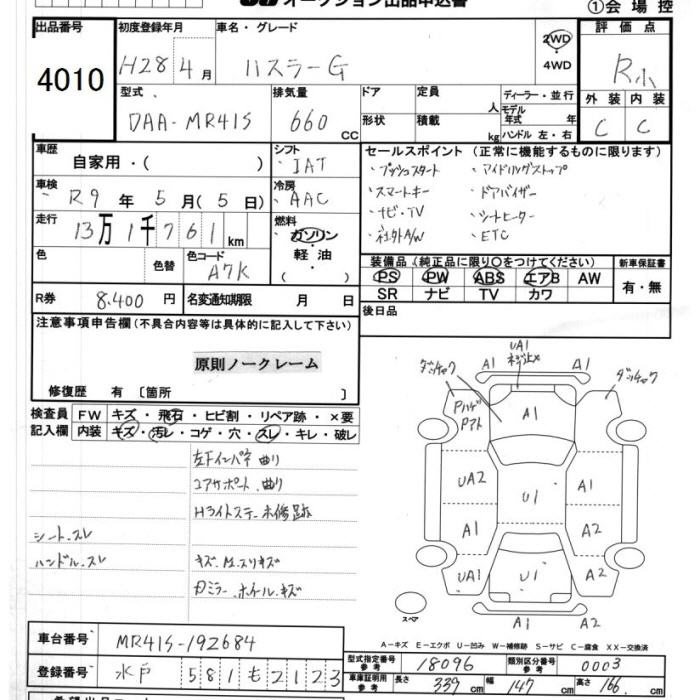 オークション出品申込書
①会場控
出品番号
4010
初度登録年月
H28年4月
車名・グレード
ハスラーG
2WD
・
4WD
評価点
R小
外装 内装
C C
型式
DAA-MR41S
排気量
660 CC
ドア 定員 人
形状 積載 kg
ディーラー・並行
モデル年式 年式
ハンドル 左・右
車歴
自家用・( )
シフト
IAT
車検
R9年5月(5日)
冷房
AAC
走行
13万1千761km
燃料
ガソリン
・
軽油
( )
色 色替
色コード
A7K
R券 8,400円
名変通知期限 月 日
セールスポイント (正常に機能するものに限ります)
・プッシュスタート ・アイドリングストップ
・スマートキー ・ドアバイザー
・ナビ・TV ・シートヒーター
・社外A/W ・ETC
装備品 (純正品に限り○をつけてください)
PS PW ABS エアB AW
SR ナビ TV カワ
新車保証書
有・無
後日品
注意事項申告欄(不具合内容等は具体的に記入して下さい)
原則ノークレーム
修復歴 有 〔箇所 〕
検査員記入欄
FW キズ・飛石・ヒビ割・リペア跡・×要
内装 キズ・汚レ・コゲ・穴・スレ・キレ・破レ
左Fインパネ曲り
コアサポート.曲り
Hライトステー未修跡
シート.スレ
ハンドル.スレ
キズ.M.スリキズ
Dミラー.ホイールキズ
UA1
A1 A1
A1
UA2 U1 A1
A1 A2
UA1 U1 A2
A1 A2
スペア
A－キズ E－エクボ U－凹み W－補修跡 S－サビ C－腐食 XX－交換済
車台番号 MR41S-192684
登録番号 水戸 581 も 2123
型式指定番号 参考 18096
類別区分番号 参考 0003
車庫証明用 参考 長さ 339cm 幅 147cm 高さ 166cm